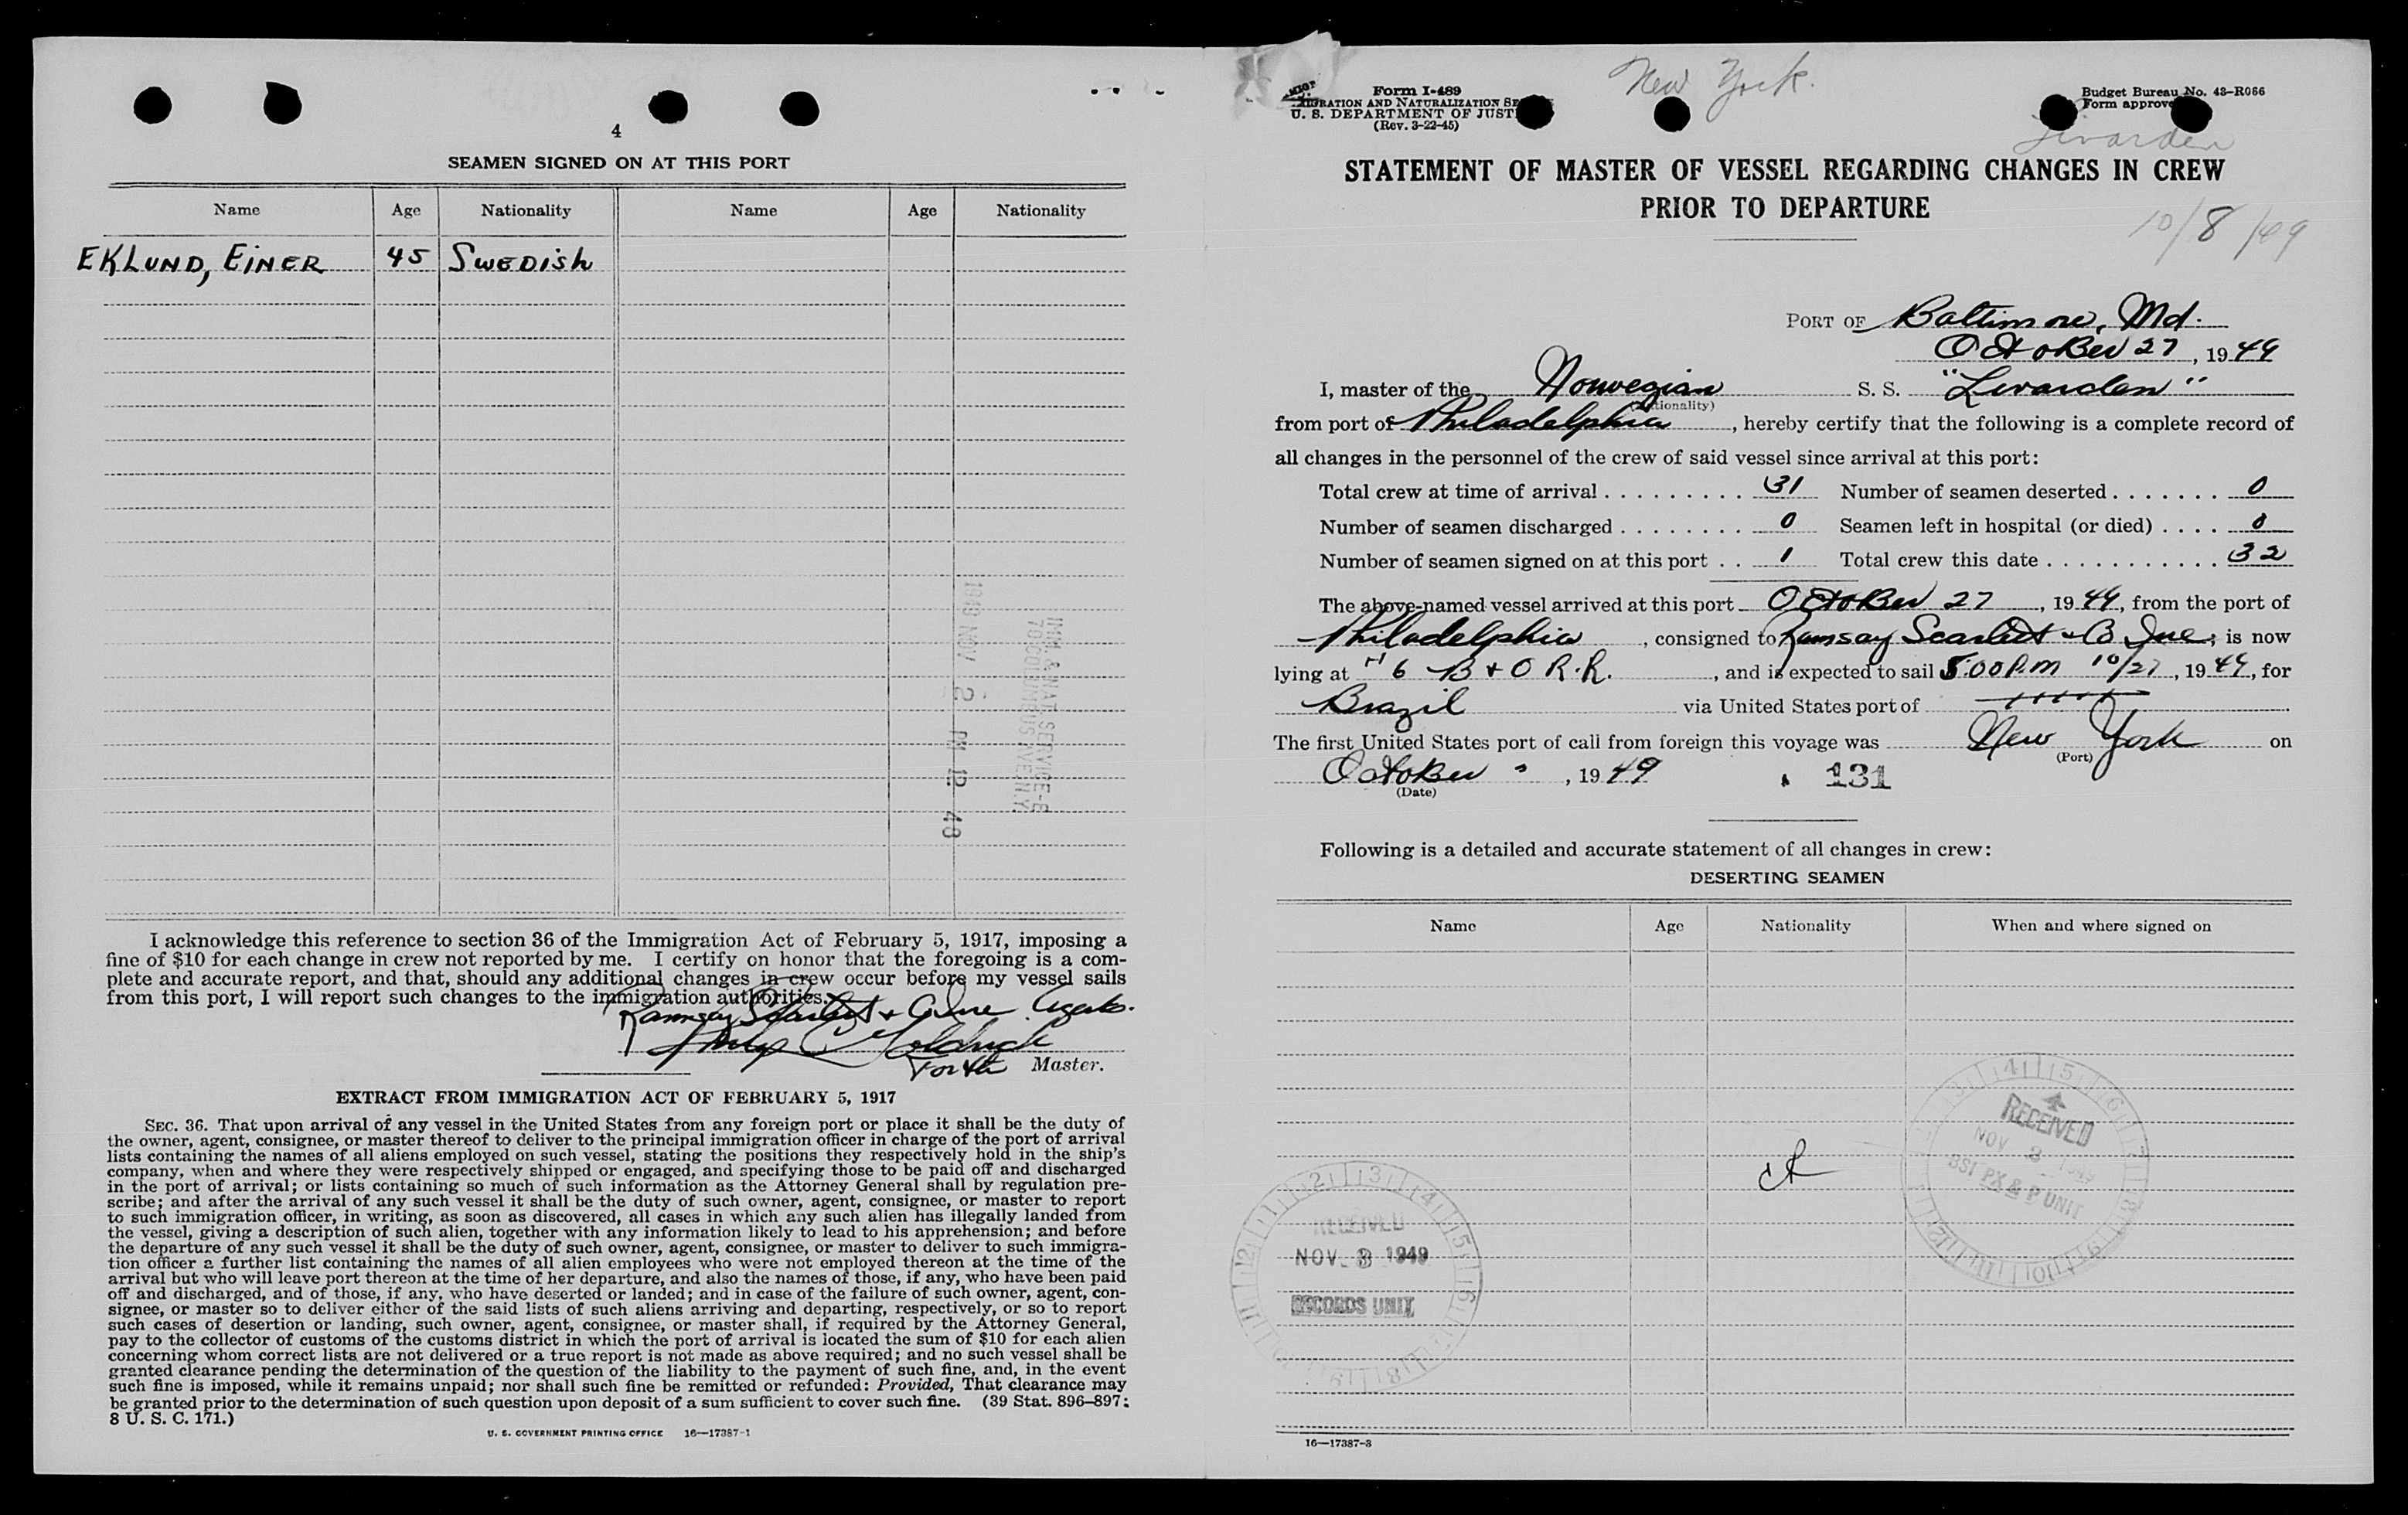 4
SEAMEN SIGNED ON AT THIS PORT
Name Age Nationality Name Age Nationality
EKLUND, EINER 45 SWEDISH
IMM. & NAT. SERVICE-E
70 COLUMBUS AVE. N.Y.
1949 NOV 2 PM 12 48
I acknowledge this reference to section 36 of the Immigration Act of February 5, 1917, imposing a
fine of $10 for each change in crew not reported by me. I certify on honor that the foregoing is a com-
plete and accurate report, and that, should any additional changes in crew occur before my vessel sails
from this port, I will report such changes to the immigration authorities.
Ramsay Scarlett & Co Inc Agents.
For the Master.
EXTRACT FROM IMMIGRATION ACT OF FEBRUARY 5, 1917
SEC. 36. That upon arrival of any vessel in the United States from any foreign port or place it shall be the duty of
the owner, agent, consignee, or master thereof to deliver to the principal immigration officer in charge of the port of arrival
lists containing the names of all aliens employed on such vessel, stating the positions they respectively hold in the ship's
company, when and where they were respectively shipped or engaged, and specifying those to be paid off and discharged
in the port of arrival; or lists containing so much of such information as the Attorney General shall by regulation pre-
scribe; and after the arrival of any such vessel it shall be the duty of such owner, agent, consignee, or master to report
to such immigration officer, in writing, as soon as discovered, all cases in which any such alien has illegally landed from
the vessel, giving a description of such alien, together with any information likely to lead to his apprehension; and before
the departure of any such vessel it shall be the duty of such owner, agent, consignee, or master to deliver to such immigra-
tion officer a further list containing the names of all alien employees who were not employed thereon at the time of the
arrival but who will leave port thereon at the time of her departure, and also the names of those, if any, who have been paid
off and discharged, and of those, if any, who have deserted or landed; and in case of the failure of such owner, agent, con-
signee, or master so to deliver either of the said lists of such aliens arriving and departing, respectively, or so to report
such cases of desertion or landing, such owner, agent, consignee, or master shall, if required by the Attorney General,
pay to the collector of customs of the customs district in which the port of arrival is located the sum of $10 for each alien
concerning whom correct lists are not delivered or a true report is not made as above required; and no such vessel shall be
granted clearance pending the determination of the question of the liability to the payment of such fine, and, in the event
such fine is imposed, while it remains unpaid; nor shall such fine be remitted or refunded: Provided, That clearance may
be granted prior to the determination of such question upon deposit of a sum sufficient to cover such fine. (39 Stat. 896–897;
8 U. S. C. 171.)
U. S. GOVERNMENT PRINTING OFFICE 16—17387-1
New York.
Form I-489
AND NATURALIZATION
U. S. DEPARTMENT OF
(Rev. 3-22-45)
Budget Bureau No. 43–R066
Form
Livarden
STATEMENT OF MASTER OF VESSEL REGARDING CHANGES IN CREW
PRIOR TO DEPARTURE
10/8/49
PORT OF Baltimore, Md.
October 27, 1949
I, master of the Norwegian S. S. "Livarden"
(Nationality)
from port of Philadelphia, hereby certify that the following is a complete record of
all changes in the personnel of the crew of said vessel since arrival at this port:
Total crew at time of arrival 31 Number of seamen deserted 0
Number of seamen discharged 0 Seamen left in hospital (or died) 0
Number of seamen signed on at this port 1 Total crew this date 32
The above-named vessel arrived at this port October 27, 1949, from the port of
Philadelphia, consigned to Ramsay Scarlett & Co Inc; is now
lying at #6 B & O R.R., and is expected to sail 5:00 P.M 10/27, 1949, for
Brazil via United States port of
The first United States port of call from foreign this voyage was New York on
(Port)
October , 1949 131
(Date)
Following is a detailed and accurate statement of all changes in crew:
DESERTING SEAMEN
Name Age Nationality When and where signed on
RECEIVED
NOV 3 1949
BSI PX & P UNIT
RECEIVED
NOV 3 1949
RECORDS UNIT
16—17387-3